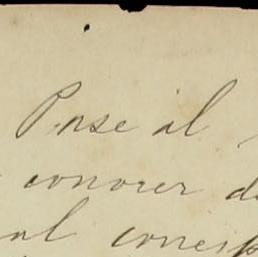 Pase al
conocer d
al corresp